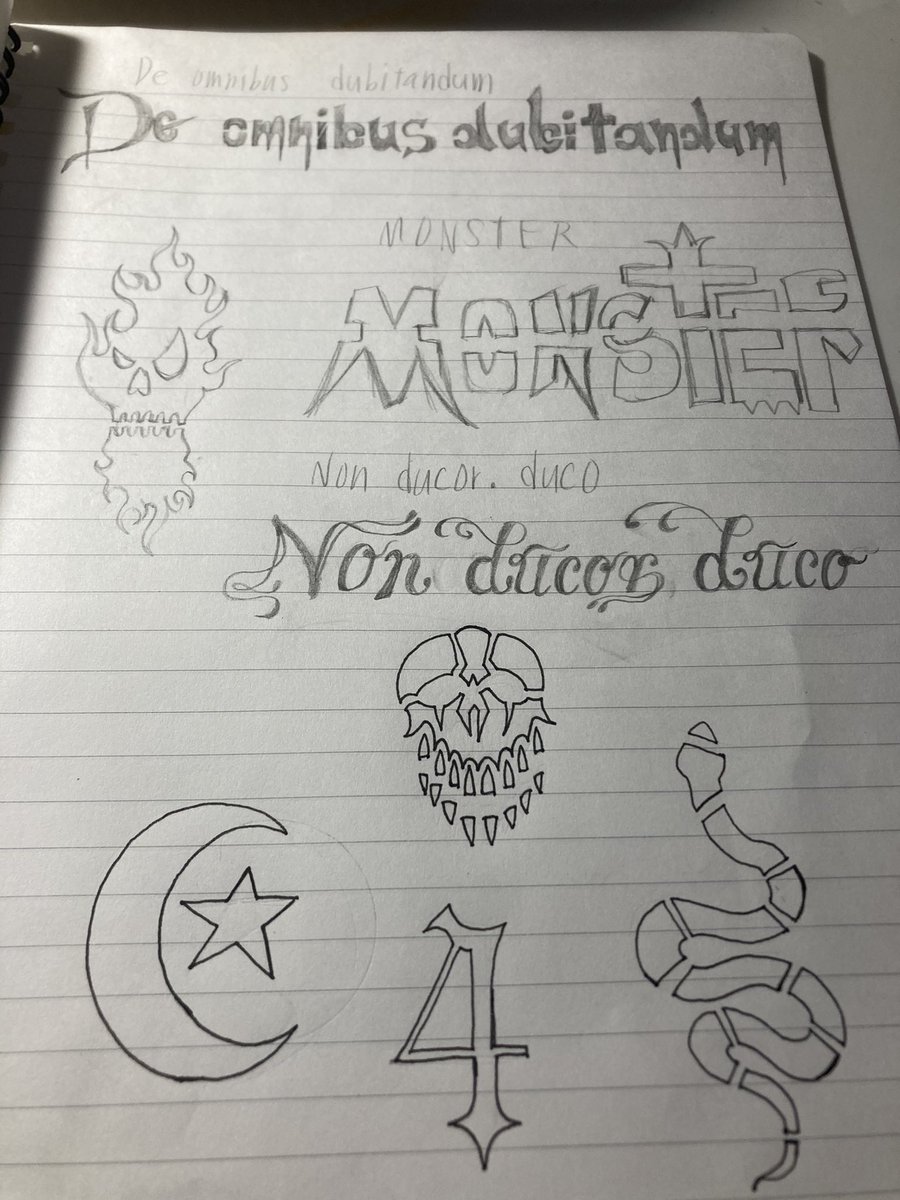 De omnibus dubitandum
De omnibus dubitandum
MONSTER
MONSTER
Non ducor. duco
Non ducor duco
4